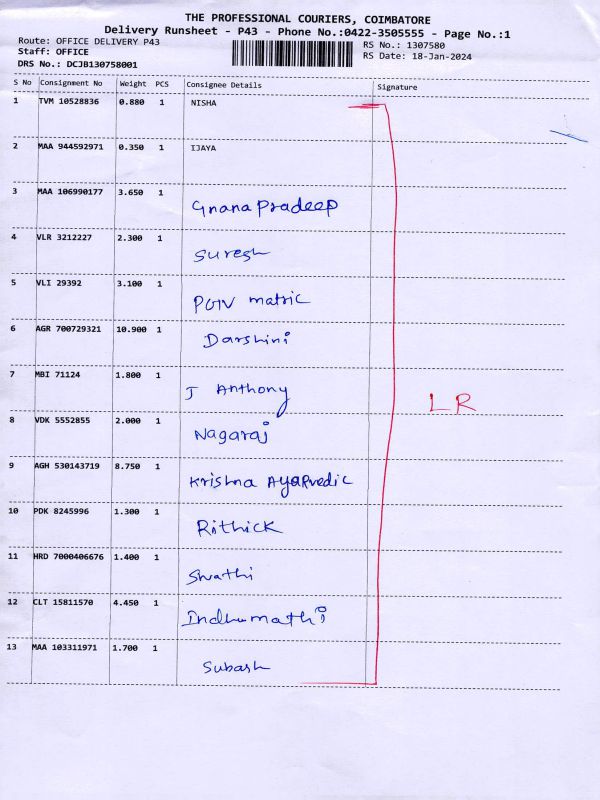 THE PROFESSIONAL COURIERS, COIMBATORE
Delivery Runsheet - P43 - Phone No.:0422-3505555 - Page No.:1
Route: OFFICE DELIVERY P43 RS No.: 1307580
Staff: OFFICE RS Date: 18-Jan-2024
DRS No.: DCJB130758001
S No Consignment No Weight PCS Consignee Details Signature
1 TVM 10528836 0.880 1 NISHA
2 MAA 944592971 0.350 1 IJAYA
3 MAA 106990177 3.650 1 Gnana Pradeep
4 VLR 3212227 2.300 1 Suresh
5 VLI 29392 3.100 1 PGV matric
6 AGR 700729321 10.900 1 Darshini
7 MBI 71124 1.800 1 J Anthony
LR
8 VDK 5552855 2.000 1 Nagaraj
9 AGH 530143719 8.750 1 Krishna Ayarvedic
10 PDK 8245996 1.300 1 Rithick
11 HRD 7000406676 1.400 1 Swathi
12 CLT 15811570 4.450 1 Indhumathi
13 MAA 103311971 1.700 1 Subash